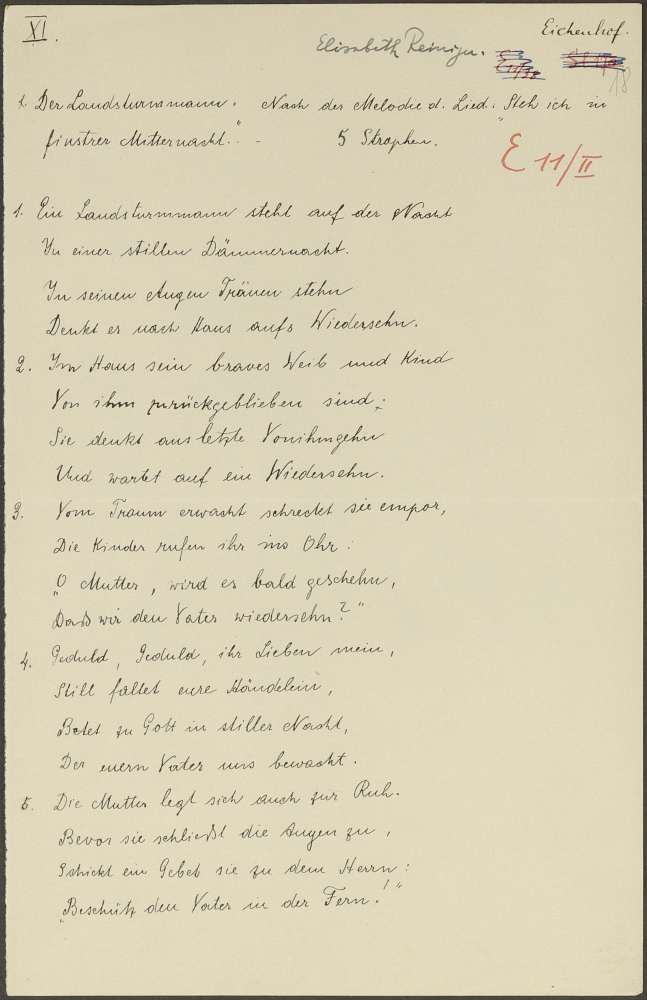 XI.
Eichenhof.
Elisabeth
18
2. Der Landsturmsmann. Nach der Melodie d. Lied: "Steh ich in
finstrer Mitternacht." - 5 Strophen.
E 11/II
1. Ein Landsturmmann steht auf der Wacht
In einer stillen Dämmernacht.
In seinen Augen Tränen stehn
Denkt er nach Haus aufs Wiedersehn.
2. Im Haus sein braves Weib und Kind
Von ihm zurückgeblieben sind;
Sie denkt ans letzte Vonihmgehn
Und wartet auf ein Wiedersehn.
3. Vom Traum erwacht schreckt sie empor,
Die Kinder rufen ihr ins Ohr:
„O Mutter, wird es bald geschehn,
Daß wir den Vater wiedersehn?"
4. Geduld, Geduld, ihr Lieben mein,
Still faltet eure Händelein,
Betet zu Gott in stiller Nacht,
Der euern Vater uns bewacht.
5. Die Mutter legt sich auch zur Ruh.
Bevor sie schließt die Augen zu,
Schickt ein Gebet sie zu dem Herrn:
„Beschütz den Vater in der Fern!"